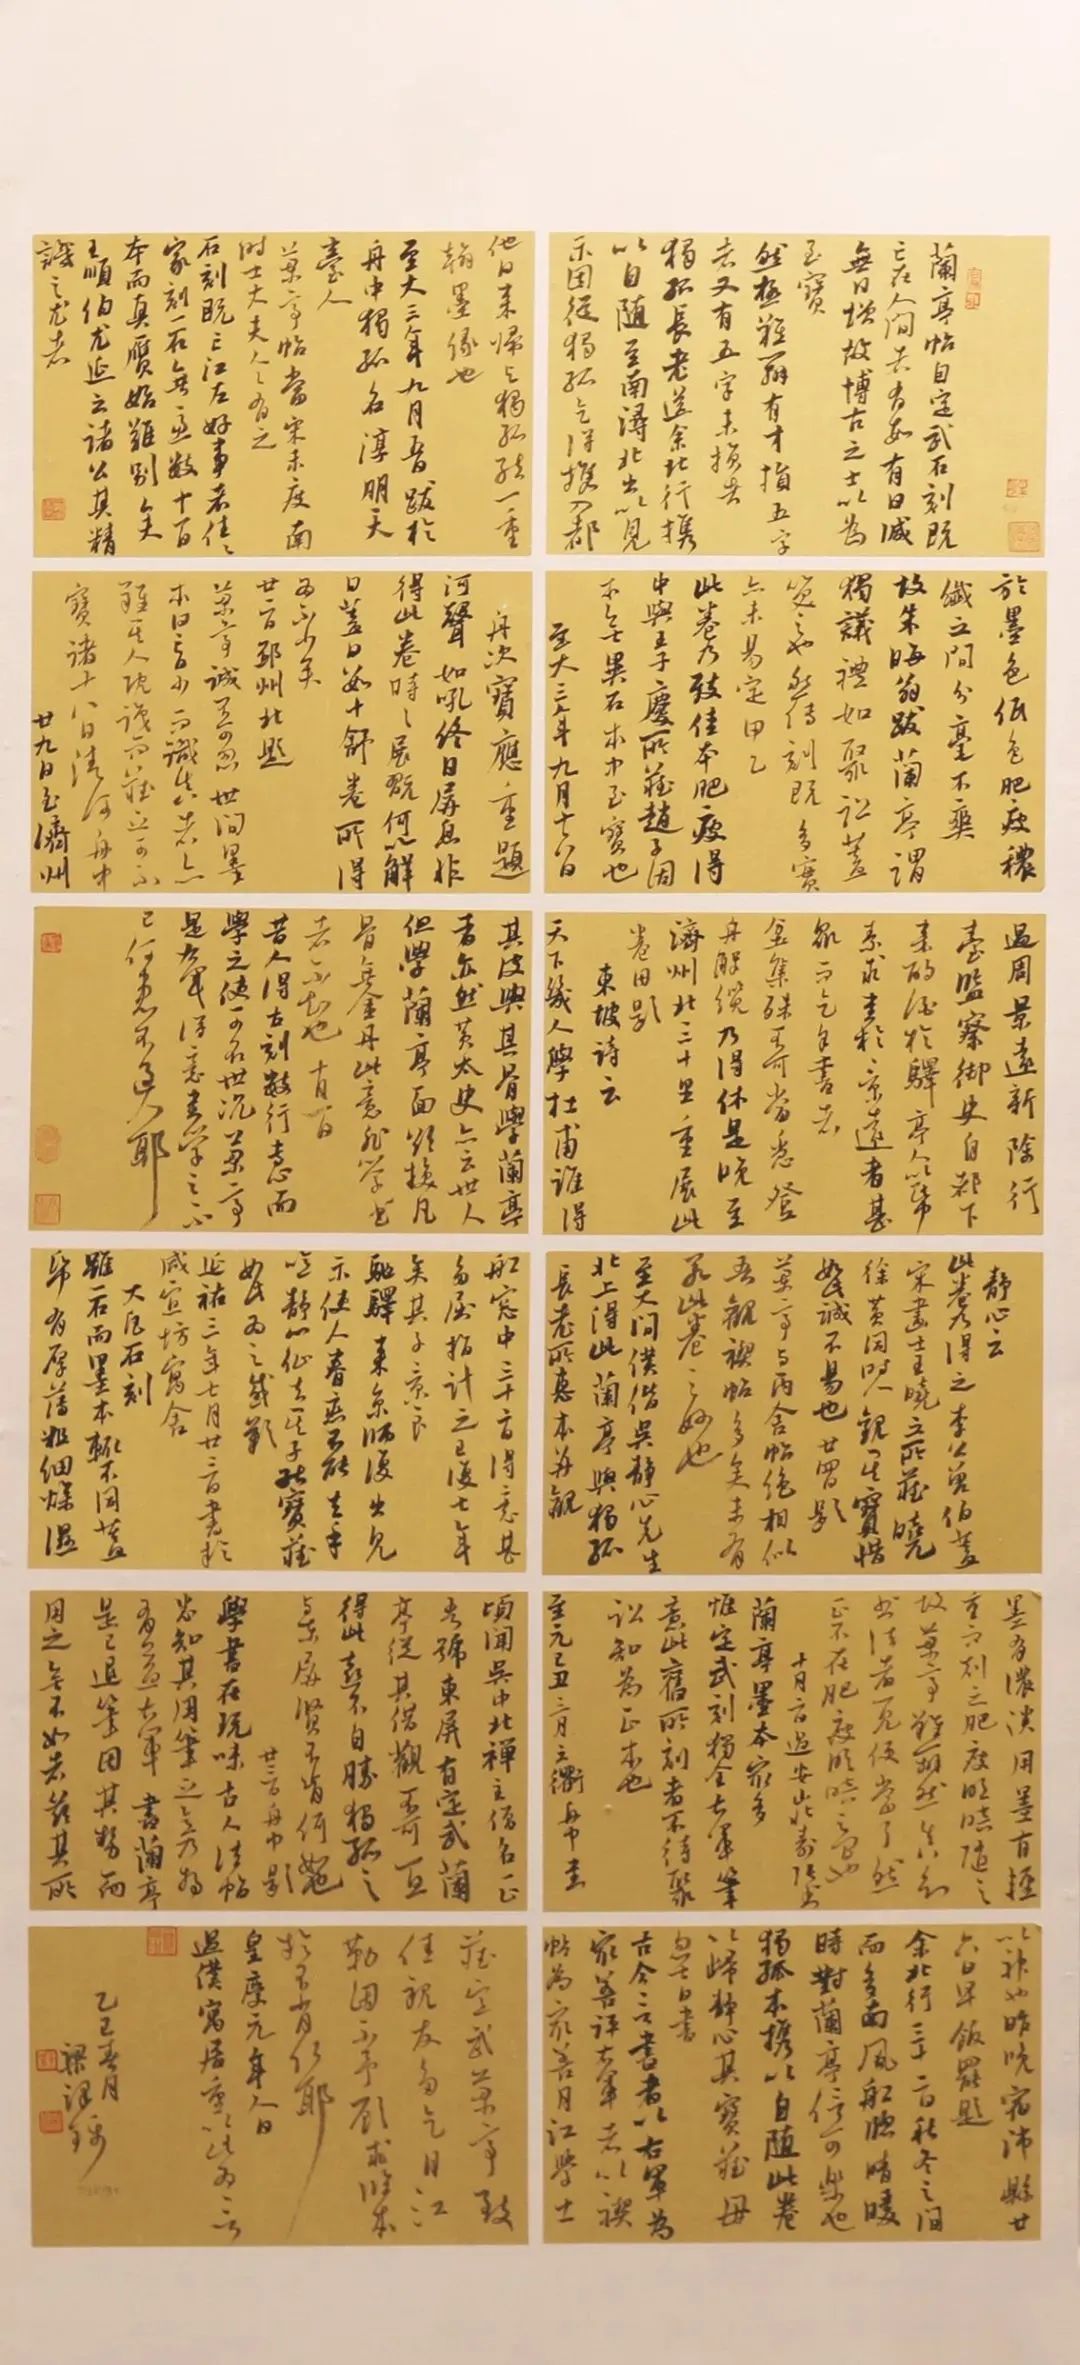 蘭亭帖自定武石刻既
亡在人間者有數有日減
無日增故博古之士以為
至寶
然極難辨有才損五字
者又有五字未損者
獨孤長老送余北行携
以自隨至南潯北出以見
示因從獨孤乞得携入都
他日來歸與獨孤結一重
翰墨緣也
至大三年九月五日跋於
舟中獨孤名淳朋天
臺人
蘭亭帖當宋未度南
時士大夫人人有之
石刻既亡江左好事者往往
家刻一石無慮數十百
本而真贗始難別矣
王順伯尤延之諸公其精
識之尤者
於墨色紙色肥瘦穠
纖之間分毫不爽
故朱晦翁跋蘭亭謂
獨議禮如聚訟蓋
笑之也然傳刻既多實
亦未易定甲乙
此卷乃致佳本肥瘦得
中與王子慶所藏趙子固
本無異石本中至寶也
至大三年九月十六日
舟次寶應重題
河聲如吼終日屏息非
得此卷時時展翫何以解
日蓋日數十舒卷所得
為不少矣
廿二日邳州北題
蘭亭誠不可忽世間墨
本日亡日少而識真者亦
難其人既識而藏之可不
寶諸十八日清河舟中
廿九日至濟州
過周景遠新除行
臺監察御史自都下
來酌酒於驛亭人以帋
素求書於景遠者甚
眾而乞余書者
坌集殊不可當急登
舟解纜乃得休是晚至
濟州北三十里重展此
卷因題
東坡詩云
天下幾人學杜甫誰得
其皮與其骨學蘭亭
者亦然黃太史亦云世人
但學蘭亭面欲換凡
骨無金丹此意非學書
者不知也十月一日
昔人得古刻數行專心而
學之便可名世況蘭亭
是右軍得意書學之不
已何患不過人耶
靜心云
此卷乃得之李公曾伯蓋
宋畫士王曉之所藏曉
徐黃同時人觀其寶惜
如此誠不易也廿四日題
蘭亭與丙舍帖絕相似
吾觀禊帖多矣未有
若此卷之妙也
至大間僕偕吳靜心先生
北上得此蘭亭與獨孤
長老所惠本並觀
船窗中三十二日得意甚
多屈指計之已復七年
矣其子景良
馳驛來京師復出見
示使人春戀不能去手
噫靜心仙去其子能寶藏
如此為之感歎
延祐三年七月廿三日書於
咸宜坊寓舍
大凡石刻
雖一石而墨本輒不同蓋
帋有厚薄粗細燥濕
墨有濃淡用墨有輕
重而刻之肥瘦明暗隨之
故蘭亭難辨然真知
書法者一見便當了然
正不在肥瘦明暗之間也
十月二日過安山北壽張書
蘭亭墨本最多
惟定武刻獨全右軍筆
意此舊所刻者不待聚
訟知為正本也
至元己丑三月三衢舟中書
頃聞吳中北禪主僧名正
吾號東屏有定武蘭
亭從其借觀不可一旦
得此喜不自勝獨孤之
與東屏賢不肖何如也
廿三日舟中題
學書在玩味古人法帖
悉知其用筆之意乃為
有益右軍書蘭亭
是已退筆因其勢而
用之無不如志茲其所
以神也昨晚宿沛縣廿
六日早飯罷題
余北行三十二日秋冬之間
而多南風船窗晴暖
時對蘭亭信可樂也
獨孤本携以自隨此卷
以歸靜心其寶藏毋
忽七日書
古今言書者以右軍為
最善評右軍者以禊
帖為最善月江學士
藏定武蘭亭致
佳親友多乞月江
勒因不予顧求臨本
於不肖何耶
皇慶元年人日
過僕寓居重以此為言
乙巳春月